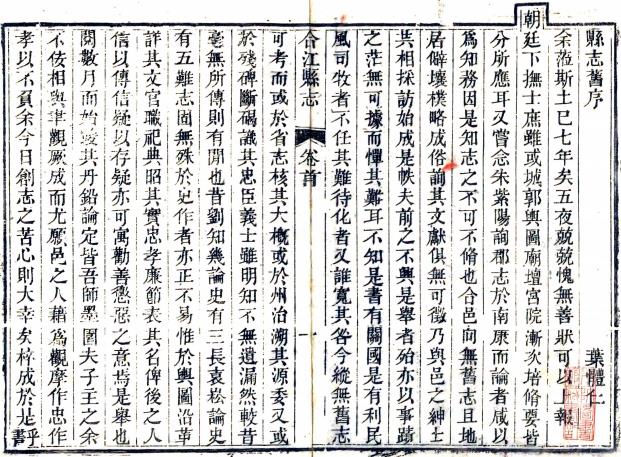 縣志舊序
葉體仁
余蒞斯土已七年矣五夜兢兢愧無善狀可以上報
朝
廷下撫士庶雖或城郭輿圖廟壇宮院漸次培脩要皆
分所應耳又嘗念朱紫陽詢郡志於南康而論者咸以
為知務因是知志之不可不脩也合邑向無舊志且地
居僻壤樸略成俗詢其文獻俱無可徵乃與邑之紳士
共相採訪始成是帙夫前之不興是舉者殆亦以事蹟
之茫無可據而憚其難耳不知是書有關國是有利民
風司牧者不任其難待化者又誰寬其咎今縱無舊志
合江縣志
卷首
一
可考而或於省志核其大概或於州治溯其源委又或
於殘碑斷碣識其忠臣義士雖明知不無遺漏然較昔
毫無所傳則有間也昔劉知幾論史有三長袁崧論史
有五難志固無殊於史作者亦正不易惟於輿圖沿革
詳其文官職祀典昭其實忠孝廉節表其名俾後之人
信以傳信疑以存疑亦可寓勸善懲惡之意焉是舉也
閱數月而始竣其丹鉛論定皆吾師墨圃夫子王之余
不佞相與聿觀厥成而尤願邑之人藉為觀摩作忠作
孝以不負余今日創志之苦心則大幸矣梓成於是乎
書